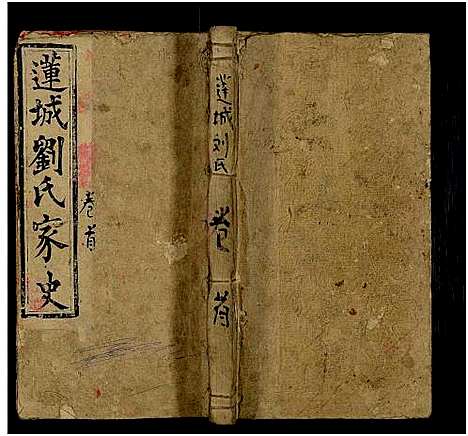 蓮城劉氏家史
卷首
蓮城刘氏
卷首